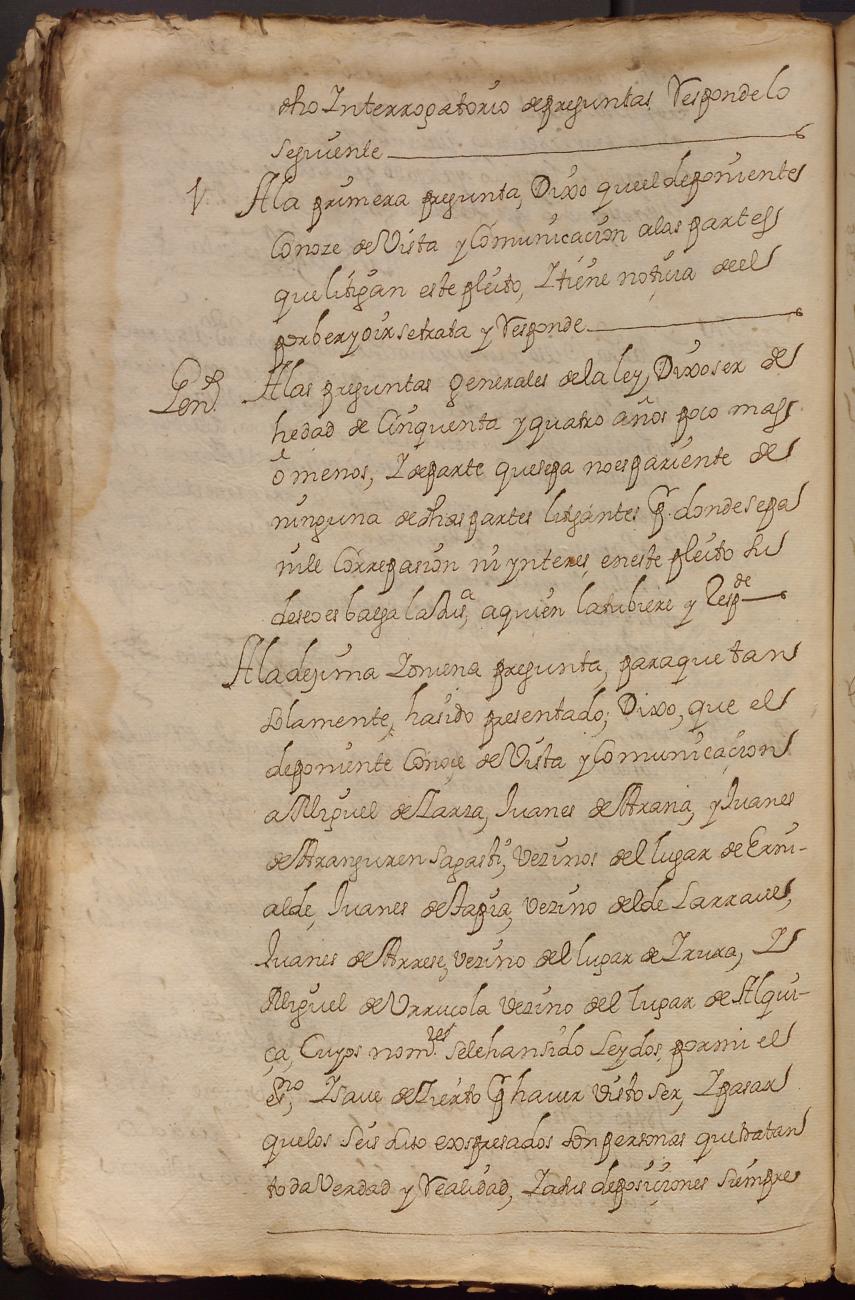 dho Interrogatorio de preguntas Responde lo
seguiente
1. A la primera pregunta, Dixo que el deponiente
Conoze de Vista y Comunicacion a las partes
que litigan este pleito, I tiene notiçia de el
por ber y oir se trata y Responde
Gen.s A las preguntas generales de la ley, Dixo ser de
hedad de Cinquenta y quatro años poco mas
ô menos, I de parte que sepa no es pariente de
ninguna de dhas partes litigantes p.r donde sepa
ni le Corre pasion ni ynteres, en este pleito su
deseo es balga la Jus.a, a quien la tubiere y Resp.de
A la dezima I novena pregunta, para que tan
solamente, ha sido presentado; Dixo, que el
deponiente Conoçe de Vista y Comunicaçion
a Miguel de Larza, Juanes de Arana, y Juanes
de Aranguren Sagasti, Vezinos del lugar de Erni-
alde, Juanes de Tapia, Vezino del de Larraul,
Juanes de Arrese, Vezino del lugar de Irura, I
Miguel de Urrucola Vezino del lugar de Alqui-
ça, Cuyos nom.res se le han sido Leydos, por mi el
Ess.no, I save de Çierto p.r haver Visto ser, I pasar
que los Seis suso exspresados son personas que tratan
toda Verdad y Realidad, I a sus deposiçiones siempre